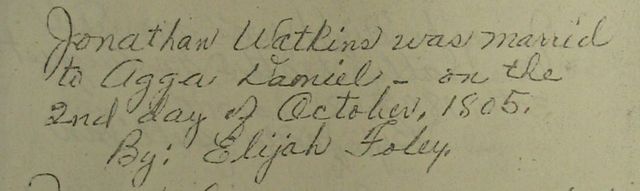 Jonathan Watkins was marrid
to Agga Daniel - on the
2nd day of October, 1805.
By: Elijah Foley.